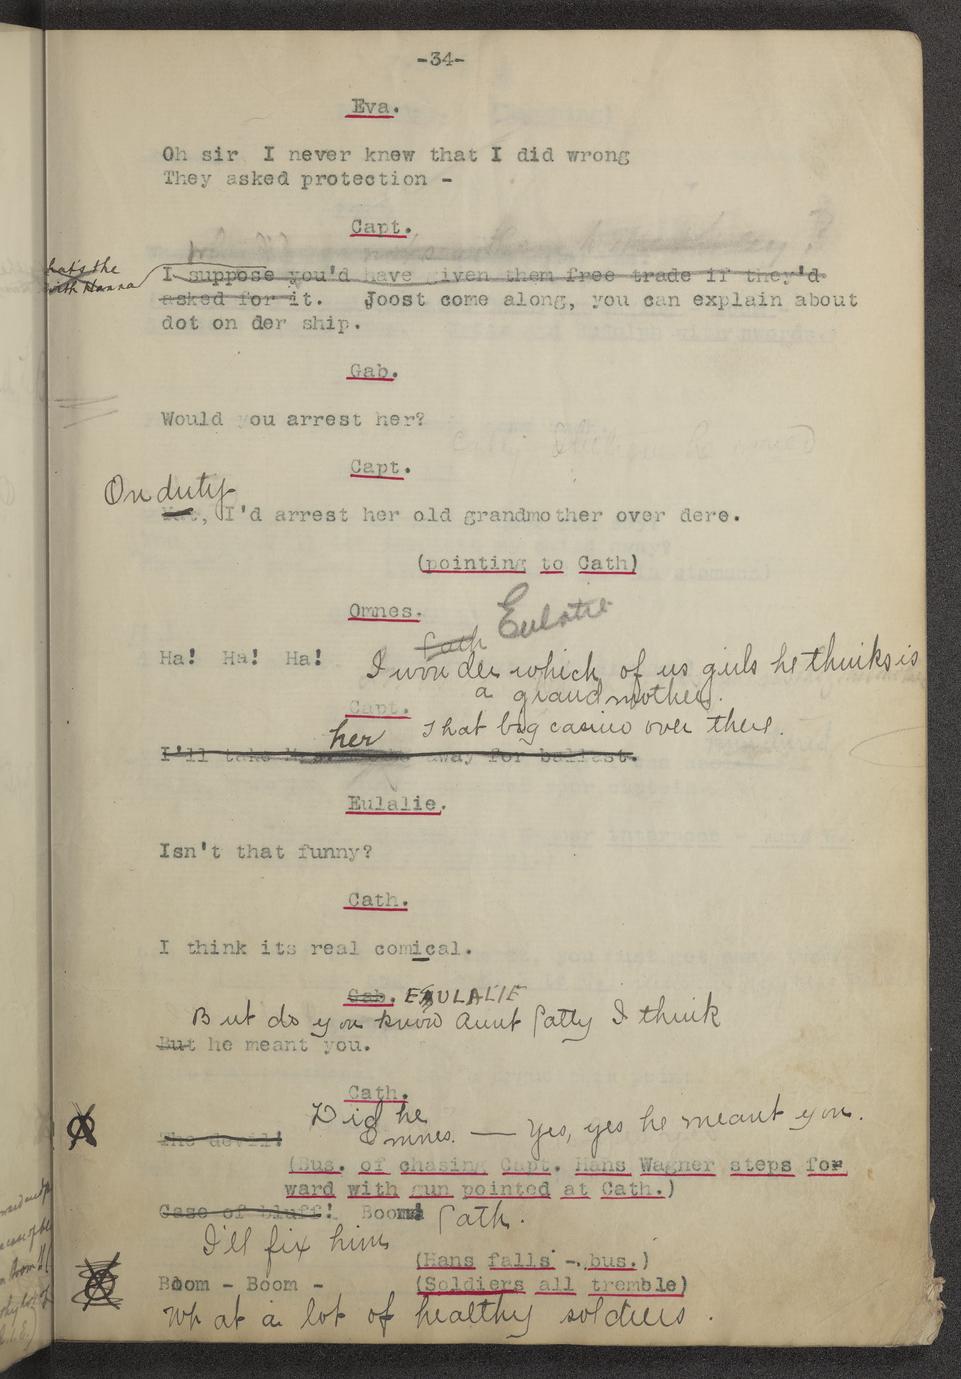 -34-
Eva.
Oh sir I never knew that I did wrong
They asked protection -
Capt.
hat's the
with Hanna
I suppose you'd have given them free trade if they'd
asked for it. Joost come along, you can explain about
dot on der ship.
Gab.
Would you arrest her?
Capt.
On duty
Yat, I'd arrest her old grandmother over dere.
(pointing to Cath)
Omnes.
Cath Eulalie
Ha! Ha! Ha! I wonder which of us girls he thinks is
a grandmother.
Capt. That big casino over there.
her
I'll take away for ballast.
Eulalie.
Isn't that funny?
Cath.
I think its real comical.
Gab. EULALIE
But do you know Aunt Catty I think
But he meant you.
Cath.
Did he
The devil! Omnes. — Yes, yes he meant you.
(Bus. of chasing Capt. Hans Wagner steps for
ward with gun pointed at Cath.)
Case of bluff! Boom! Cath.
I'll fix him
(Hans falls - bus.)
Boom - Boom - (Soldiers all tremble)
What a lot of healthy soldiers.